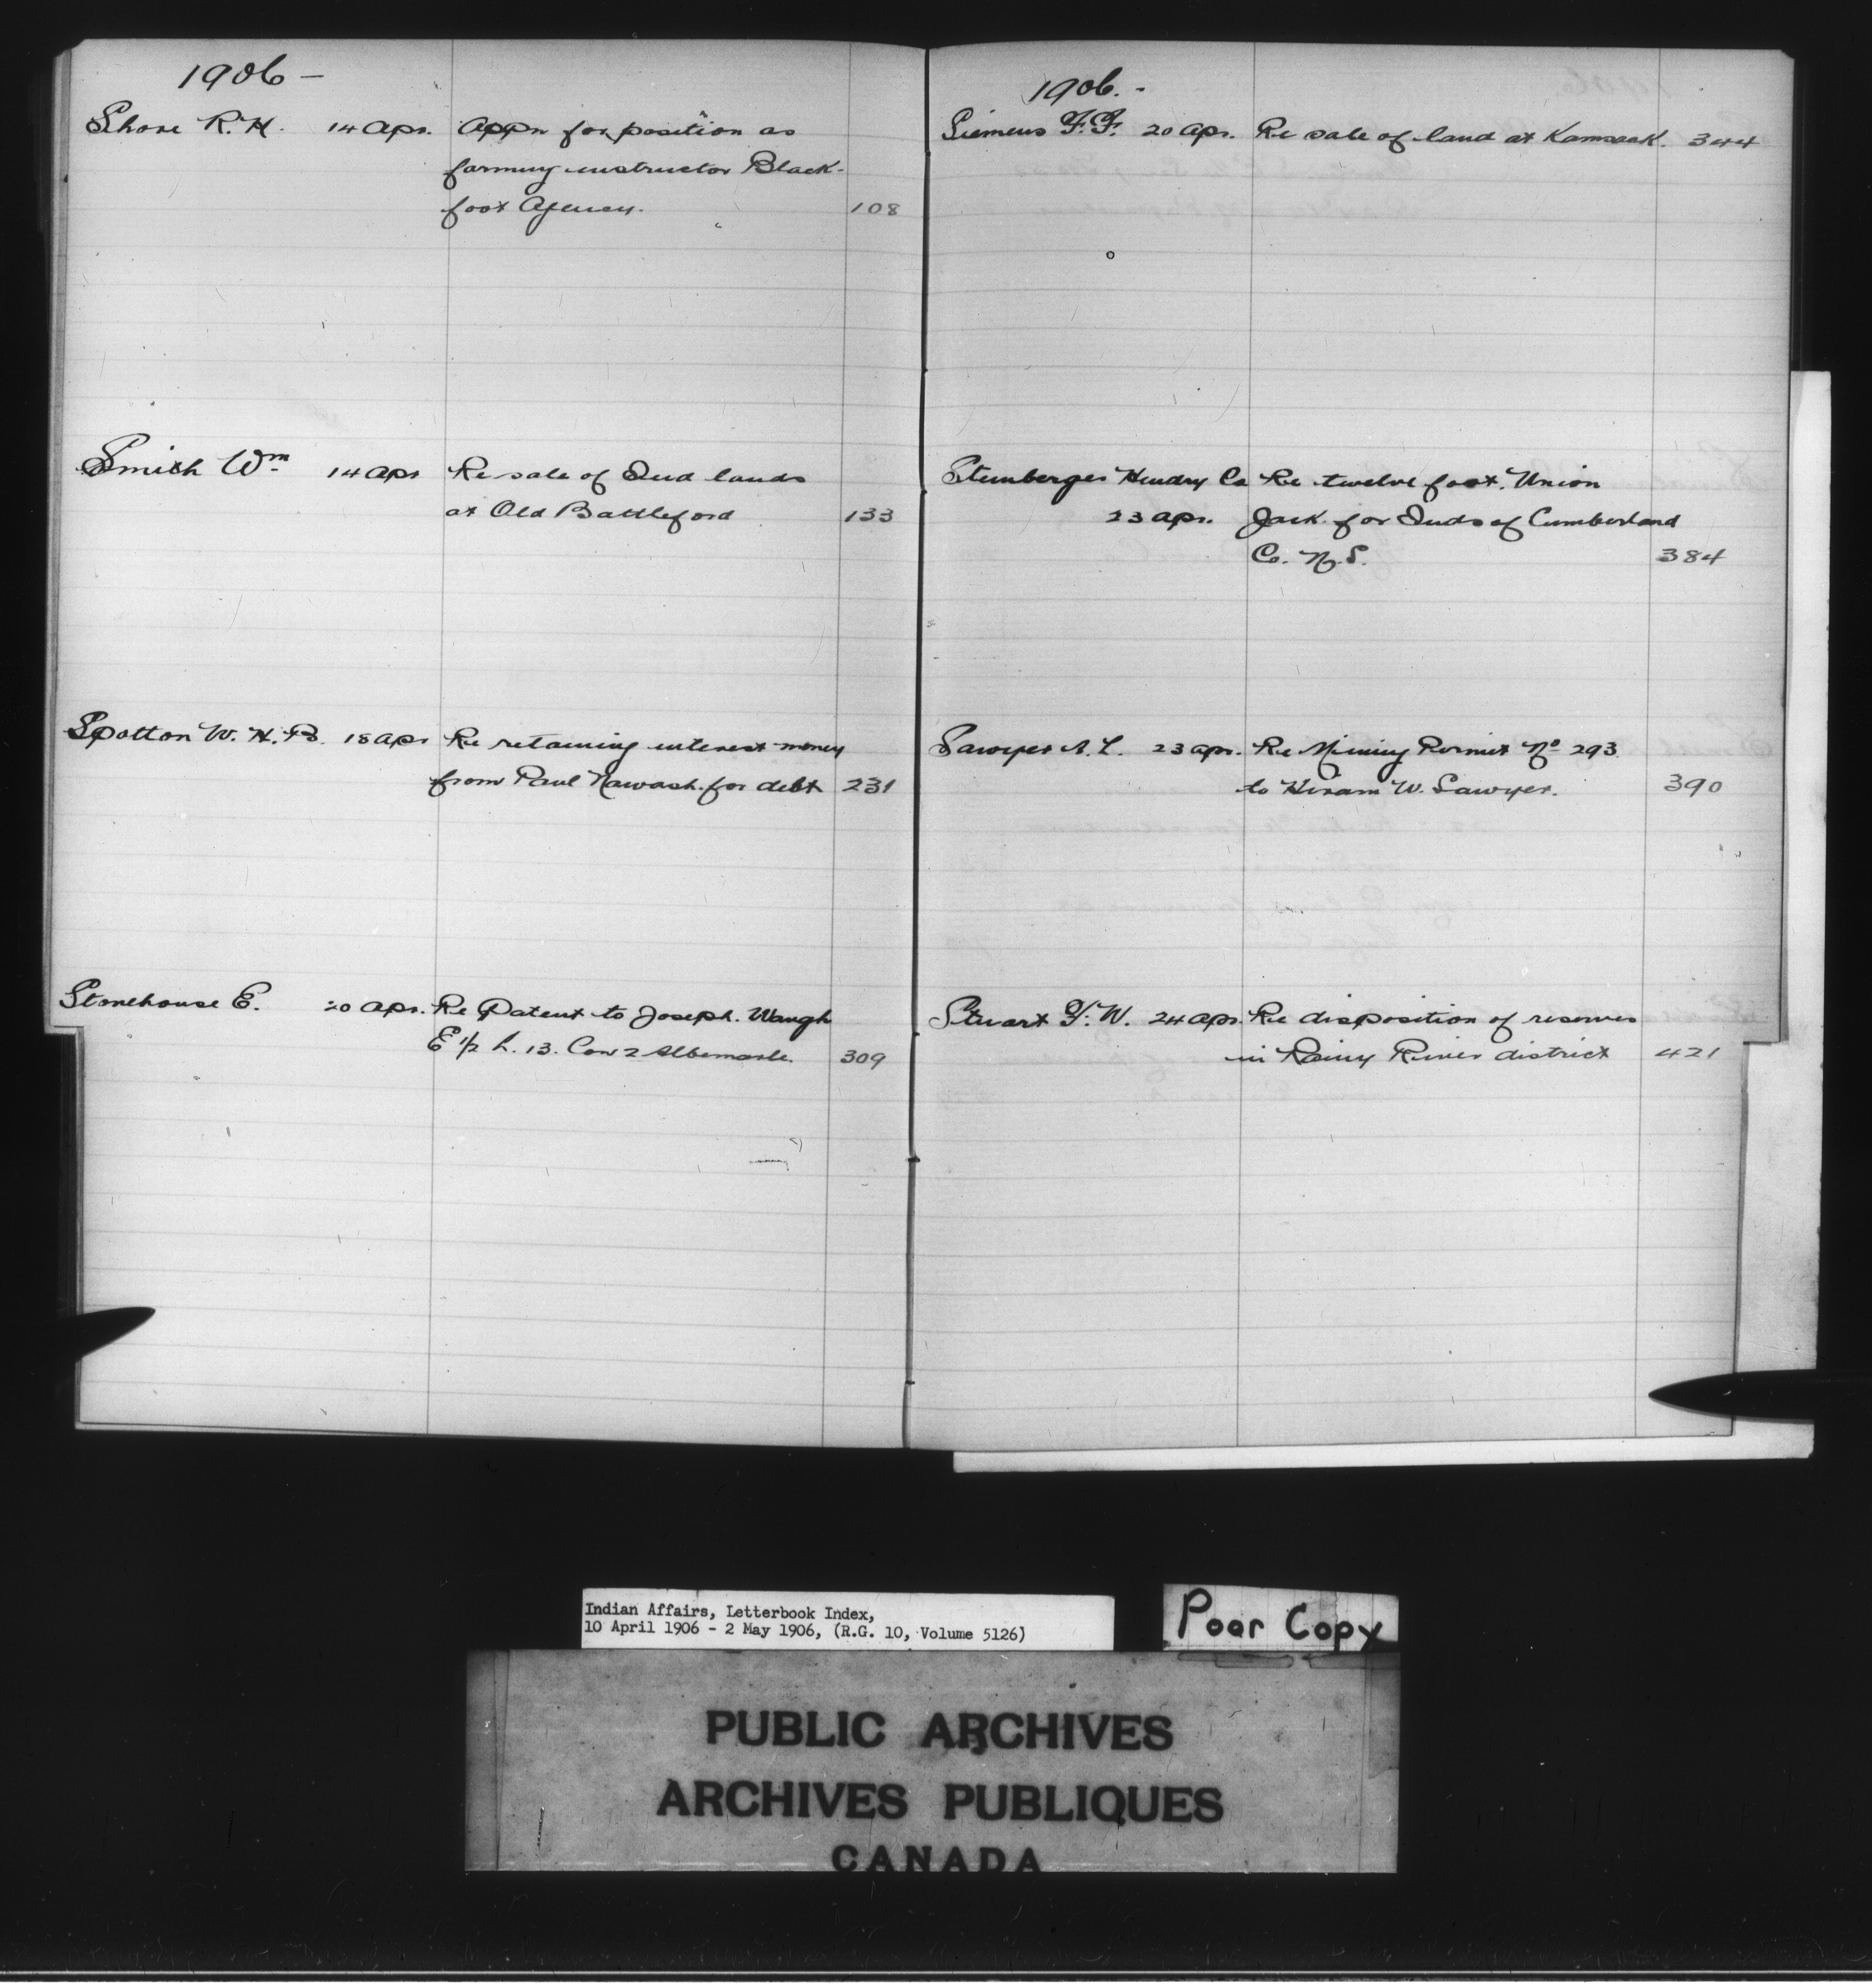 1906 –
Shore R. H. 14 Apr. Appn for position as
farming instructor Black-
foot Agency. 108
Smith Wm 14 Apr Re sale of Ind lands
at Old Battleford 133
Spotton W. H. B. 18 Apr Re retaining interest money
from Paul Nawash for debt 231
Stonehouse E. 20 Apr. Re Patent to Joseph. Waugh
E 1/2 L. 13. Con 2 Albemarle. 309
1906. -
Siemens F. F. 20 Apr. Re sale of land at Kamsack. 344
Sternberger Hendry Co Re twelve foot. Union
23 Apr. Jack for Inds of Cumberland
Co. N. S. 384
Sawyer A. L. 23 Apr. Re Mining Permit No 293
to Hiram W. Sawyer. 390
Stuart F. W. 24 Apr. Re disposition of reserves
in Rainy River district 421
Indian Affairs, Letterbook Index,
10 April 1906 - 2 May 1906, (R.G. 10, Volume 5126)
Poor Copy
PUBLIC ARCHIVES
ARCHIVES PUBLIQUES
CANADA